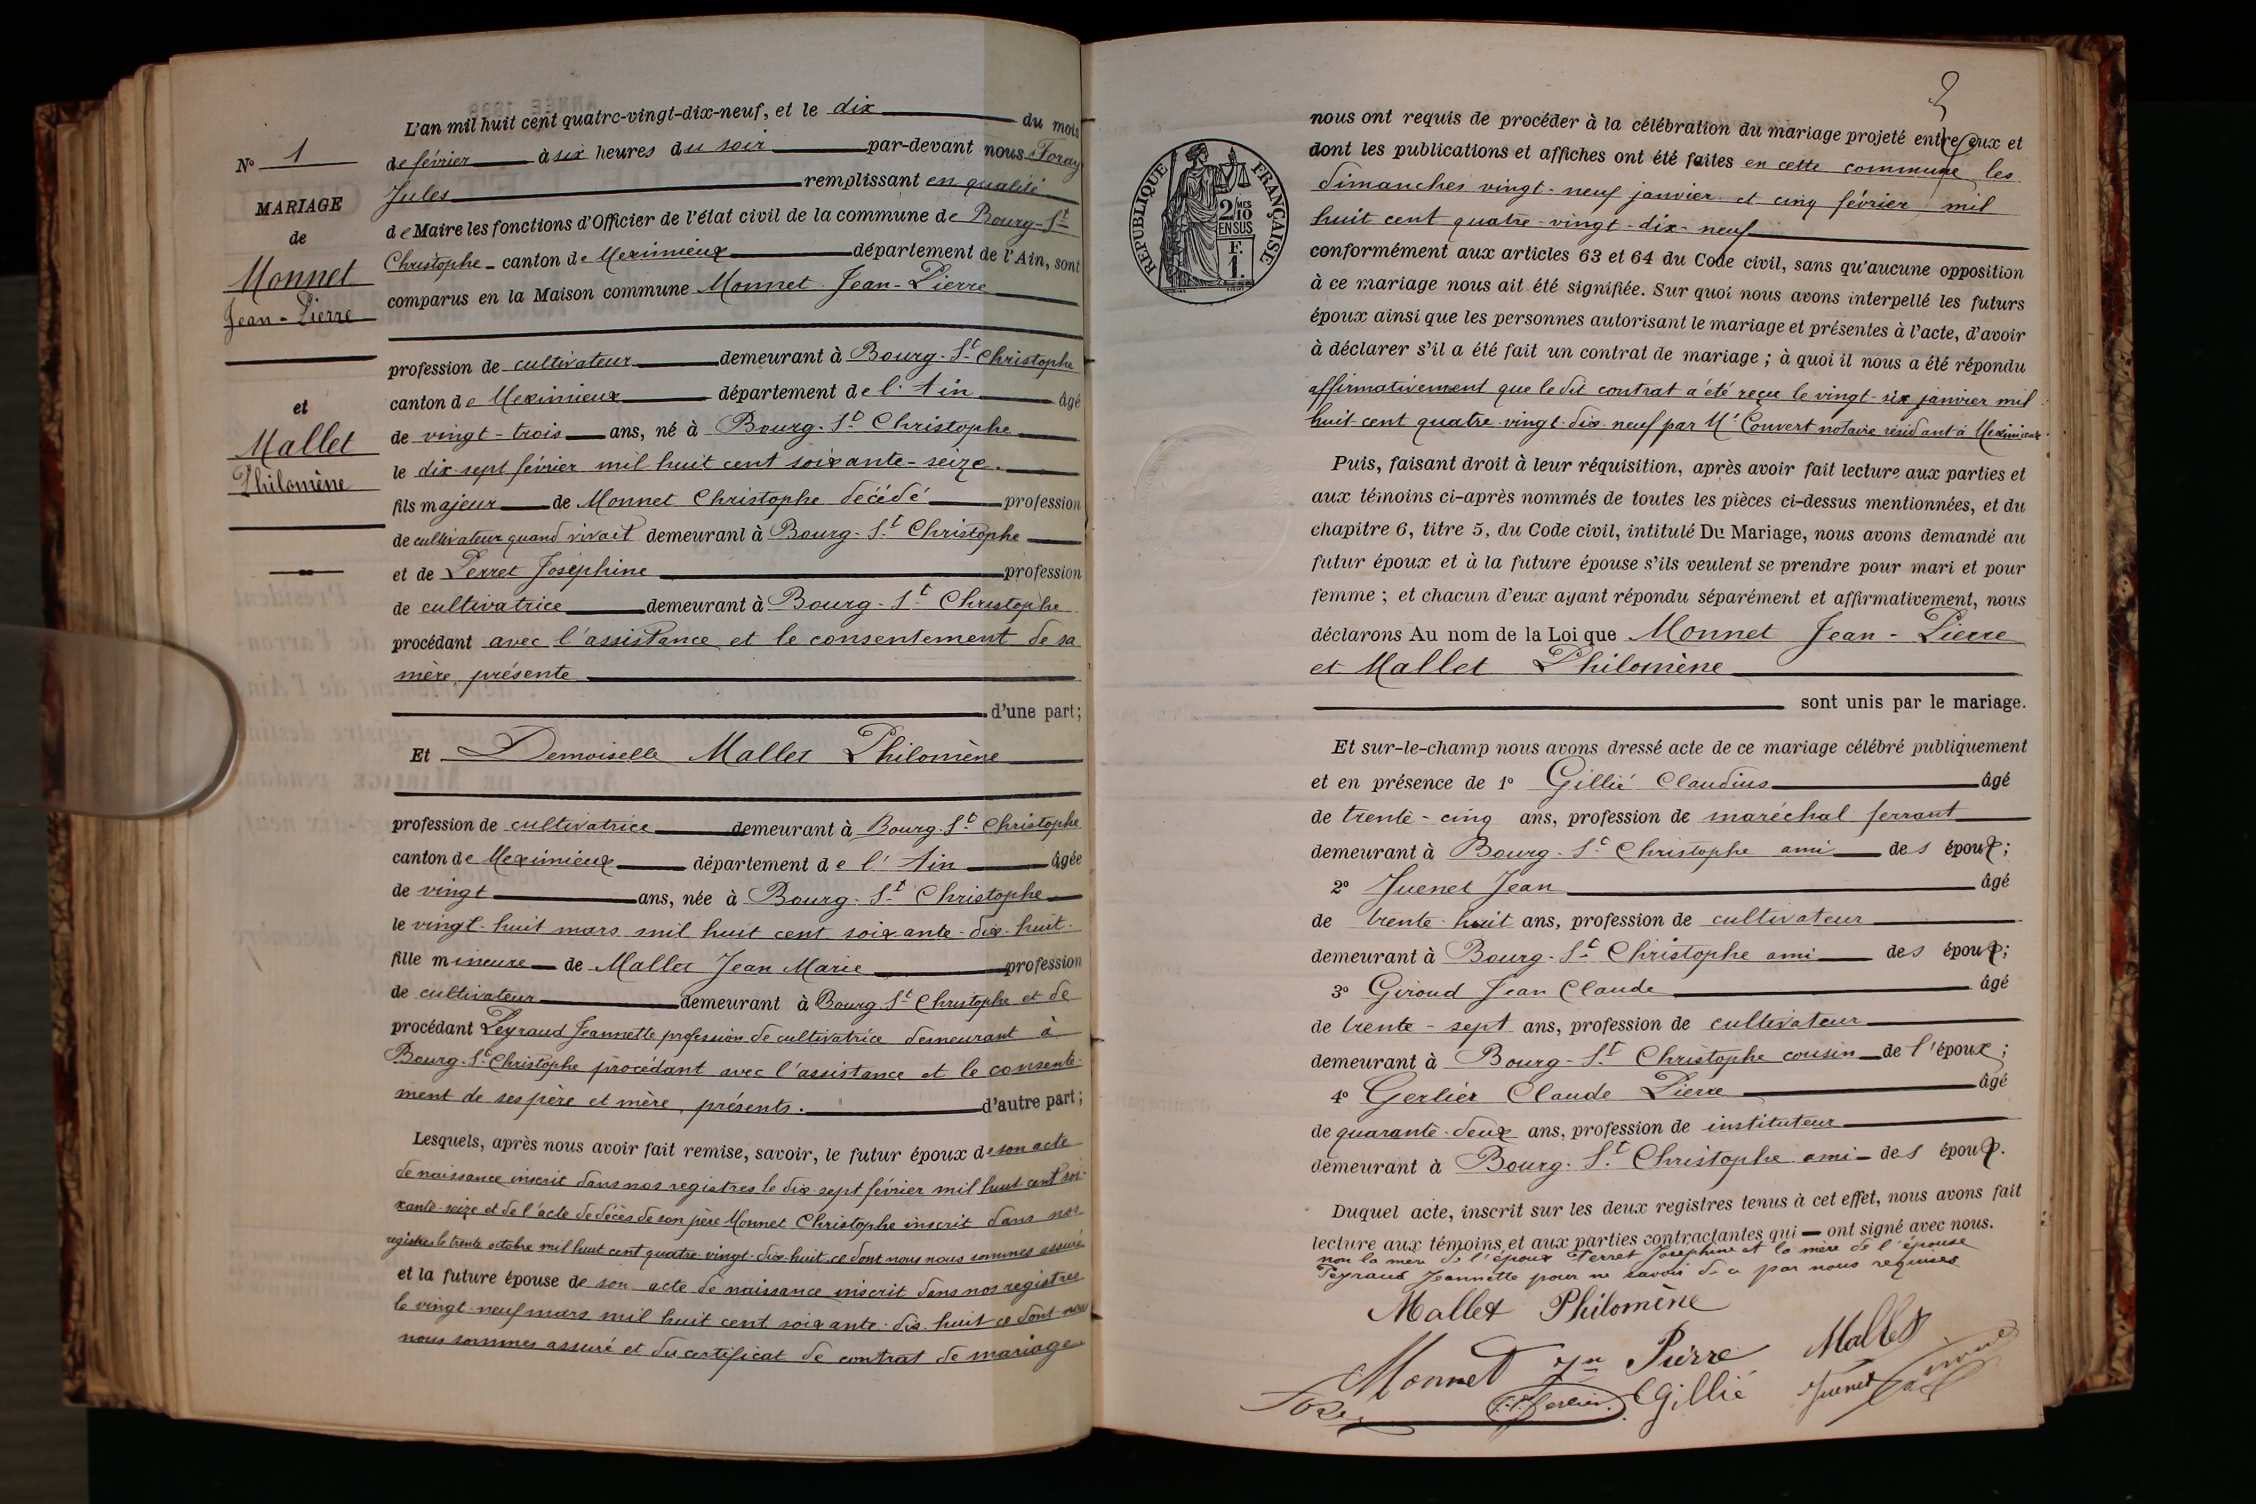 N° 1
MARIAGE
de
Monnet
Jean-Pierre
et
Mallet
Philomène
L'an mil huit cent quatre-vingt-dix-neuf, et le dix du mois
de février à six heures du soir par-devant nous Foray
Jules remplissant en qualité
de Maire les fonctions d'Officier de l'état civil de la commune de Bourg-St
Christophe - canton de Meximieux département de l'Ain, sont
comparus en la Maison commune Monnet Jean-Pierre
profession de cultivateur demeurant à Bourg-St Christophe
canton de Meximieux département de l'Ain âgé
de vingt-trois ans, né à Bourg-St Christophe
le dix-sept février mil huit cent soixante-seize.
fils majeur de Monnet Christophe décédé profession
de cultivateur quand vivait demeurant à Bourg-St Christophe
et de Perret Joséphine profession
de cultivatrice demeurant à Bourg-St Christophe
procédant avec l'assistance et le consentement de sa
mère présente
d'une part;
Et Demoiselle Mallet Philomène
profession de cultivatrice demeurant à Bourg-St Christophe
canton de Meximieux département de l'Ain âgée
de vingt ans, née à Bourg-St Christophe
le vingt-huit mars mil huit cent soixante-dix-huit.
fille mineure de Mallet Jean Marie profession
de cultivateur demeurant à Bourg St Christophe et de
procédant Peyraud Jeannette profession de cultivatrice demeurant à
Bourg-St Christophe procédant avec l'assistance et le consente-
ment de ses père et mère, présents. d'autre part;
Lesquels, après nous avoir fait remise, savoir, le futur époux de son acte
de naissance inscrit dans nos registres le dix-sept février mil huit cent soi-
xante-seize et de l'acte de décès de son père Monnet Christophe inscrit dans nos
registres le trente octobre mil huit cent quatre-vingt-dix-huit, ce dont nous nous sommes assuré
et la future épouse de son acte de naissance inscrit dans nos registres
le vingt-neuf mars mil huit cent soixante-dix-huit ce dont nous
nous sommes assuré et du certificat de contrat de mariage
2
RÉPUBLIQUE FRANÇAISE
2 MES
10
EN SUS
F.
1.
nous ont requis de procéder à la célébration du mariage projeté entre eux et
dont les publications et affiches ont été faites en cette commune les
dimanches vingt-neuf janvier et cinq février mil
huit cent quatre-vingt-dix-neuf
conformément aux articles 63 et 64 du Code civil, sans qu'aucune opposition
à ce mariage nous ait été signifiée. Sur quoi nous avons interpellé les futurs
époux ainsi que les personnes autorisant le mariage et présentes à l'acte, d'avoir
à déclarer s'il a été fait un contrat de mariage; à quoi il nous a été répondu
affirmativement que le dit contrat a été reçu le vingt-six janvier mil
huit-cent quatre-vingt-dix-neuf par Me Couvert notaire résidant à Meximieux.
Puis, faisant droit à leur réquisition, après avoir fait lecture aux parties et
aux témoins ci-après nommés de toutes les pièces ci-dessus mentionnées, et du
chapitre 6, titre 5, du Code civil, intitulé Du Mariage, nous avons demandé au
futur époux et à la future épouse s'ils veulent se prendre pour mari et pour
femme; et chacun d'eux ayant répondu séparément et affirmativement, nous
déclarons Au nom de la Loi que Monnet Jean-Pierre
et Mallet Philomène
sont unis par le mariage.
Et sur-le-champ nous avons dressé acte de ce mariage célébré publiquement
et en présence de 1° Gillié Claudius âgé
de trente-cinq ans, profession de maréchal ferrant
demeurant à Bourg-St Christophe ami des époux;
2° Juenet Jean âgé
de trente-huit ans, profession de cultivateur
demeurant à Bourg-St Christophe ami des époux;
3° Giroud Jean Claude âgé
de trente-sept ans, profession de cultivateur
demeurant à Bourg-St Christophe cousin de l'époux;
4° Gerlier Claude Pierre âgé
de quarante-deux ans, profession de instituteur
demeurant à Bourg-St Christophe ami des époux.
Duquel acte, inscrit sur les deux registres tenus à cet effet, nous avons fait
lecture aux témoins et aux parties contractantes qui ont signé avec nous.
non la mère de l'époux Perret Joséphine et la mère de l'épouse
Peyraud Jeannette pour ne savoir de ce par nous requises
Mallet Philomène
Monnet Jn Pierre Mallet
Foray Gerlier Gillié Juenet Giroud